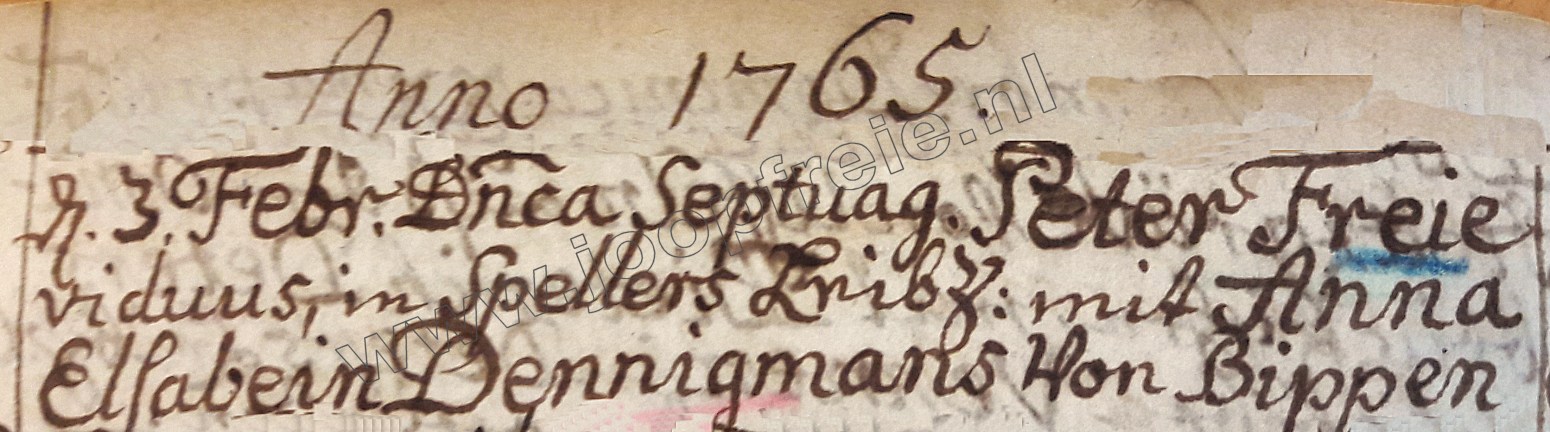 Anno 1765.
d. 3. Febr. Dn̄ca Septuag. Peter Freie
viduus, in Spellers Leibz: mit Anna
Elsabein Dennigmans von Bippen
www.joopfreie.nl